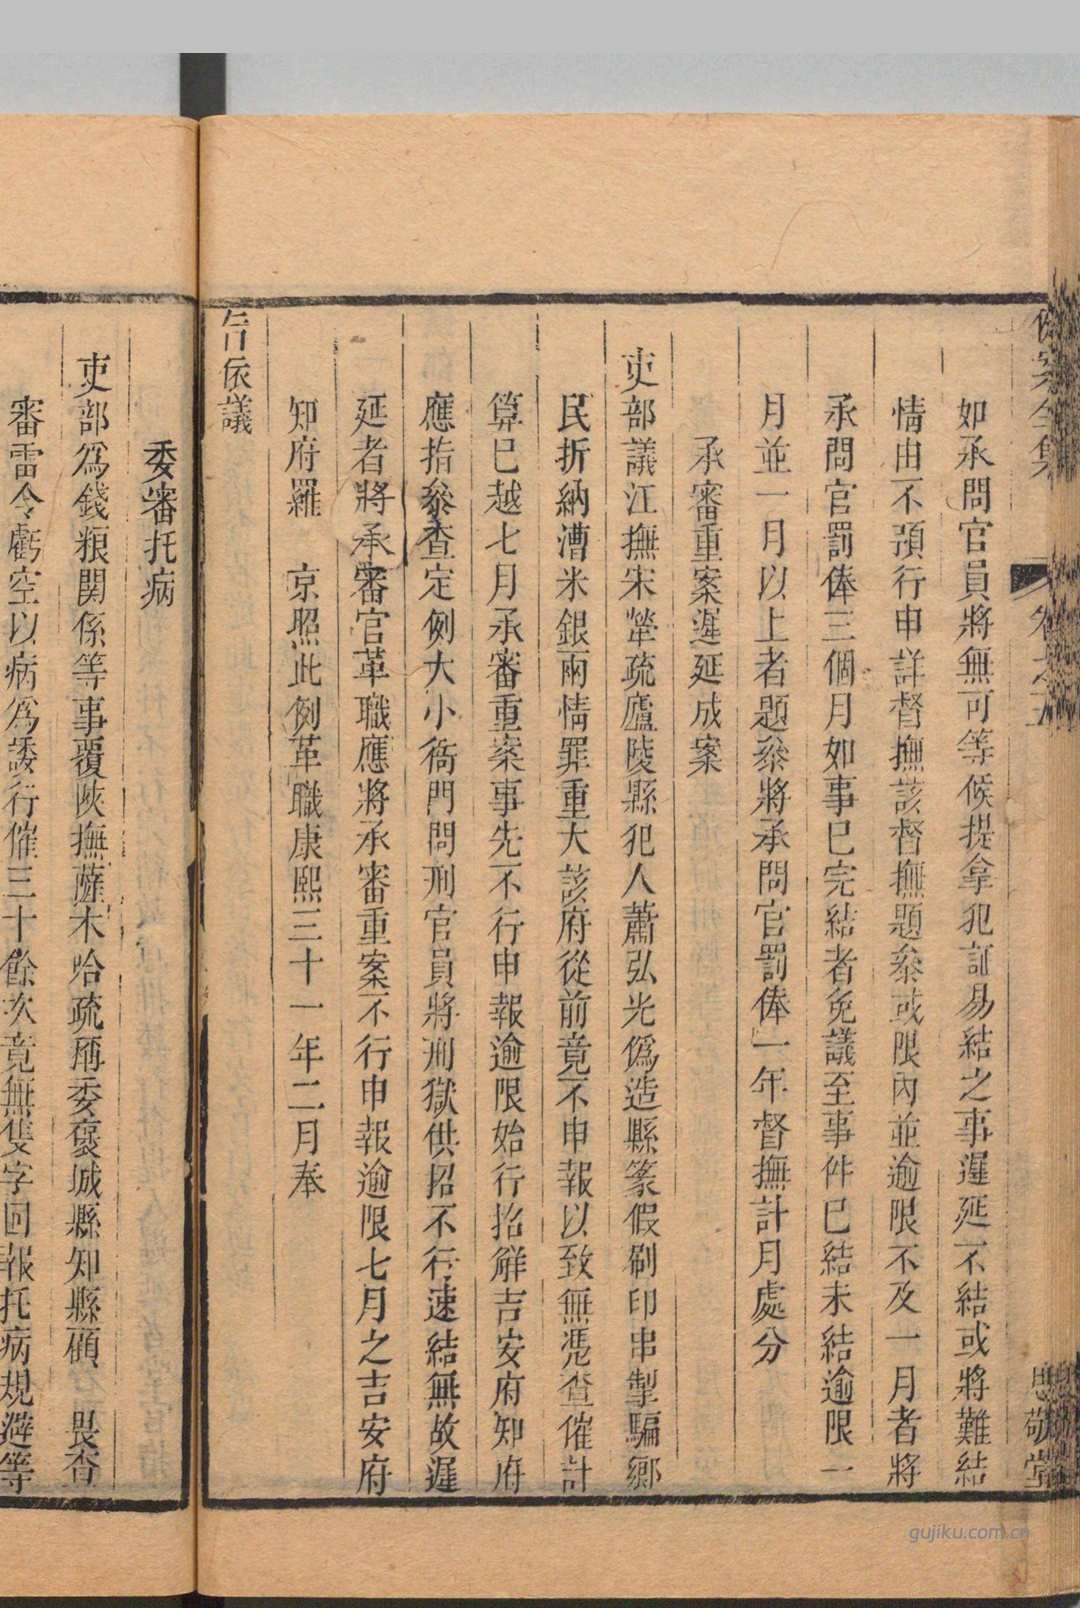 如承問官員將無可等候提拿犯証易結之事遲延不結或將難結
情由不預行申詳督撫該督撫題叅或限內並逾限不及一月者將
承問官罰俸三個月如事已完結者免議至事件已結未結逾限一
月並一月以上者題叅將承問官罰俸一年督撫計月處分
承審重案遲延成案
吏部議江撫宋犖疏廬陵縣犯人蕭弘光僞造縣篆假刷印串掣騙鄉
民折納漕米銀兩情罪重大該府從前竟不申報以致無憑查催計
算已越七月承審重案事先不行申報逾限始行招解吉安府知府
應指叅查定例大小衙門問刑官員將刑獄供招不行速結無故遲
延者將承審官革職應將承審重案不行申報逾限七月之吉安府
知府羅　京照此例革職康熙三十一年二月奉
旨依議
委審托病
吏部爲錢糧関係等事覆陝撫薩木哈疏稱委褒城縣知縣顧　畏查
審雷令虧空以病爲諉行催三十餘次竟無隻字回報托病規避等
卷之五
思敬堂
gujiku.com.cn